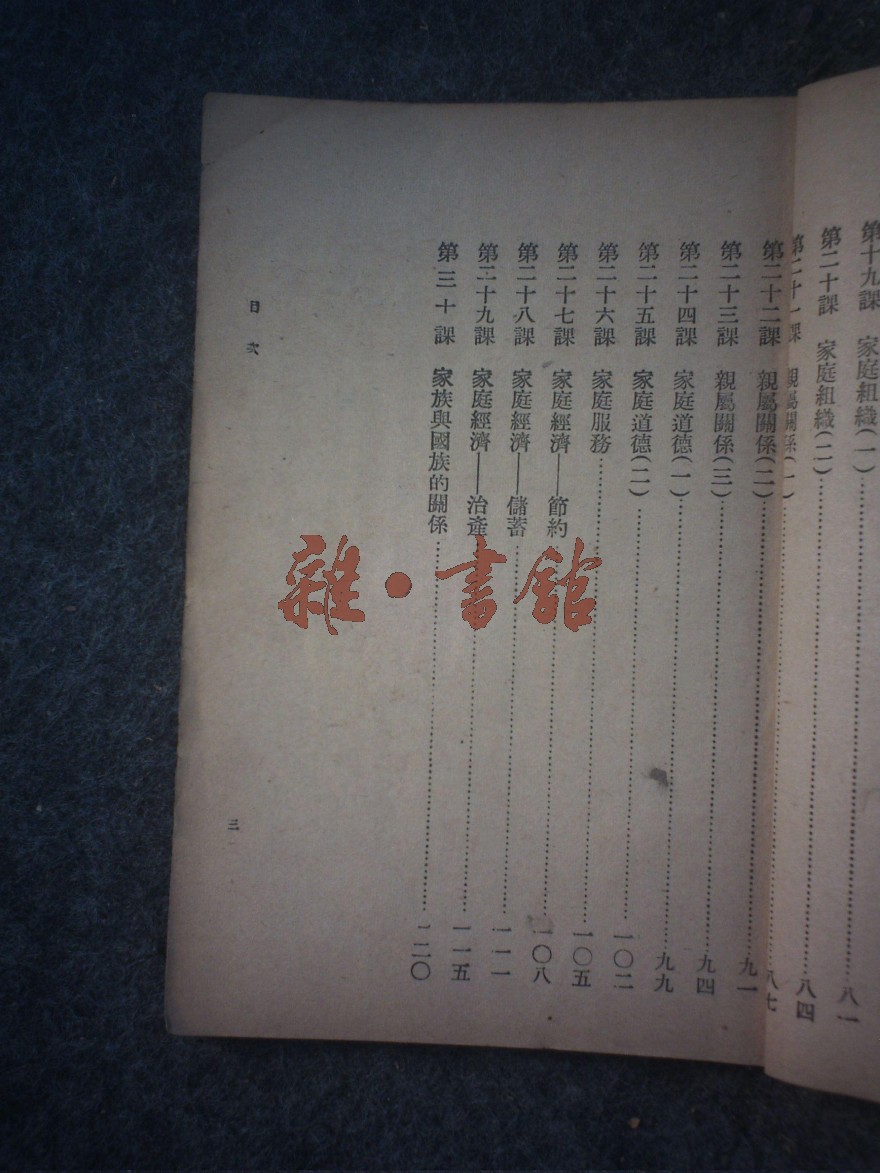 第十九課 家庭組織(一)……八一
第二十課 家庭組織(二)……八四
第二十一課 親屬關係(一)……八七
第二十二課 親屬關係(二)……九一
第二十三課 親屬關係(三)……九四
第二十四課 家庭道德(一)……九九
第二十五課 家庭道德(二)……一〇二
第二十六課 家庭服務……一〇五
第二十七課 家庭經濟——節約……一〇八
第二十八課 家庭經濟——儲蓄……一一一
第二十九課 家庭經濟——治產……一一五
第三十課 家族與國族的關係……一二〇
目次
三
雜·書館